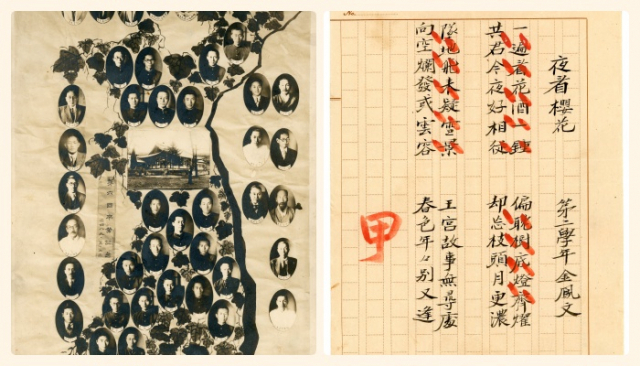 夜看櫻花
第二學年 金鳳文
一遍看花酒一鍾 偏耽樹底燈齊燿
共君今夜好相從 却忘枝頭月更濃
墜地飛來疑雪景 王宮故事無尋處
向空爛發或雲容 春色年々別又逢
甲